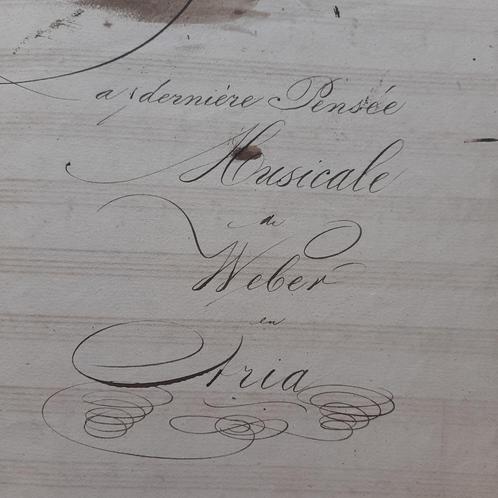 a dernière Pensée
Musicale
de
Weber
en
Aria